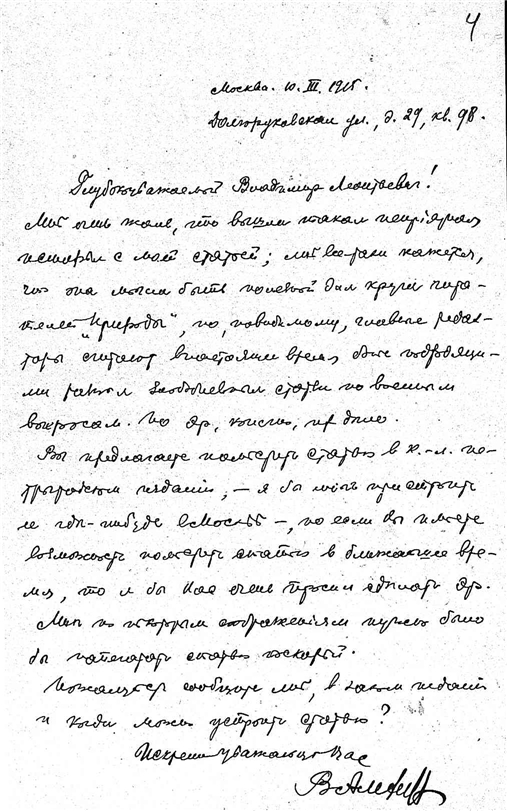 4
Москва. 10. III. 1915.
Долгоруковская ул., д. 29, кв. 98.
Глубокоуважаемый Владимир Леонтьевич!
Мнѣ очень жаль, что вышла такая непріятная
исторія с моей статьей; мнѣ все-таки кажется,
что она могла быть полезной для круга чита-
телей „Природы", но, повидимому, главные редак-
торы считают в настоящее время более подходящи-
ми разныя злободневныя статьи по военным
вопросам. Но это, конечно, их дѣло.
Вы предлагаете помѣстить статью в к.-л. пе-
троградском изданіи, – я бы мог пристроить
ее гдѣ-нибудь в Москвѣ –, но если Вы имѣете
возможность помѣстить статью в ближайшее вре-
мя, то я бы Вас очень просил сдѣлать это.
Мнѣ по некоторым соображеніям нужно было
бы напечатать статью поскорѣй.
Пожалуйста сообщите мнѣ, в каком изданіи
и когда можно устроить статью?
Искренно уважающій Вас